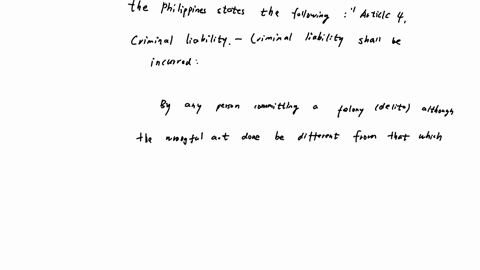 the Philippines states the following : " Article 4.
Criminal liability. – Criminal liability shall be
incurred:
By any person committing a felony (delito) although
the wrongful act done be different from that which